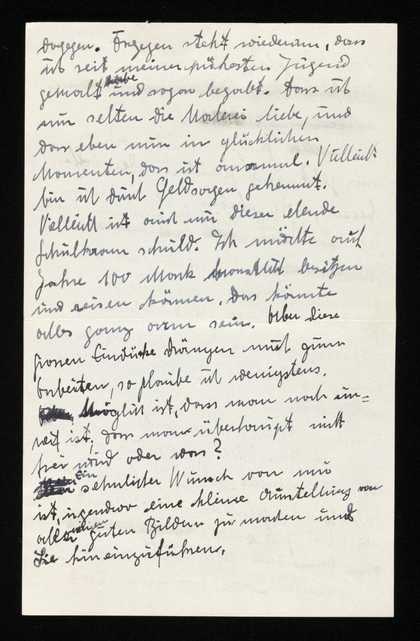 dagegen. Dagegen steht wiederum, dass
ich seit meiner frühesten Jugend
gemalt habe und sogar begabt. Dass ich
nur selten die Malerei liebe, und
das eben nur in glücklichen
Momenten, das ist anormal. Vielleicht
bin ich durch Geldsorgen gehemmt.
Vielleicht ist auch nur dieser elende
Schulkram schuld. Ich möchte auf
Jahre 100 Mark monatlich besitzen
und reisen können, das könnte
alles ganz arm sein. Aber diese
grossen Eindrücke drängen mich zum
Arbeiten, so glaube ich wenigstens.
Möglich ist, dass man noch un-
reif ist, dass man überhaupt nicht
frei wird oder was?
Ein sehnlicher Wunsch von mir
ist, irgendwo eine kleine Austellung von
allen guten Bildern zu machen und
Sie hineinzuführen.